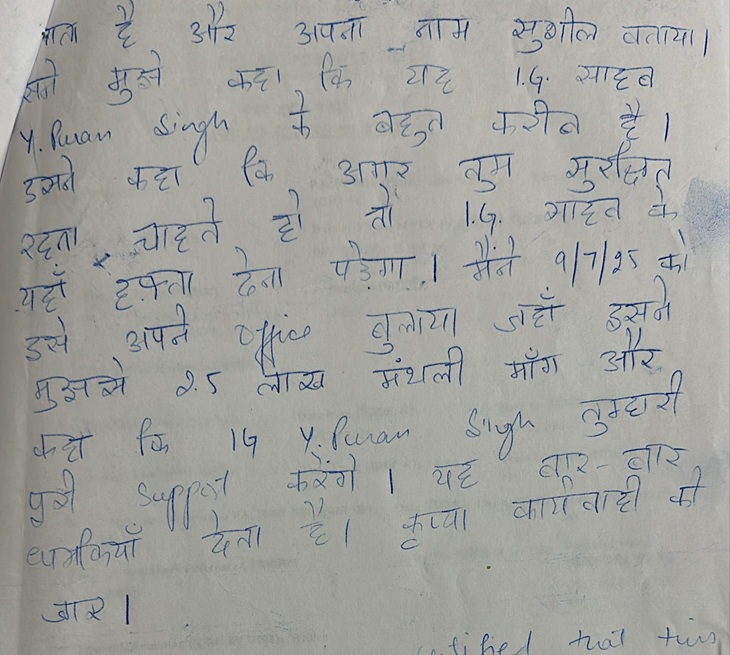 है और अपना नाम सुशील बताया।
मुझे कहा कि यह I.G. साहब
Y. Puran Singh के बहुत करीब है।
उसने कहा कि अगर तुम सुरक्षित
रहना चाहते हो तो I.G. साहब के
यहाँ हफ्ता देना पड़ेगा। मैंने 9/7/25 को
इसे अपने office बुलाया जहाँ इसने
मुझसे 2.5 लाख मंथली माँग और
कहा कि IG Y. Puran Singh तुम्हारी
पुरी support करेंगे। यह बार-बार
धमकियाँ देता है। कृप्या कार्यवाही की
जाए।
that this